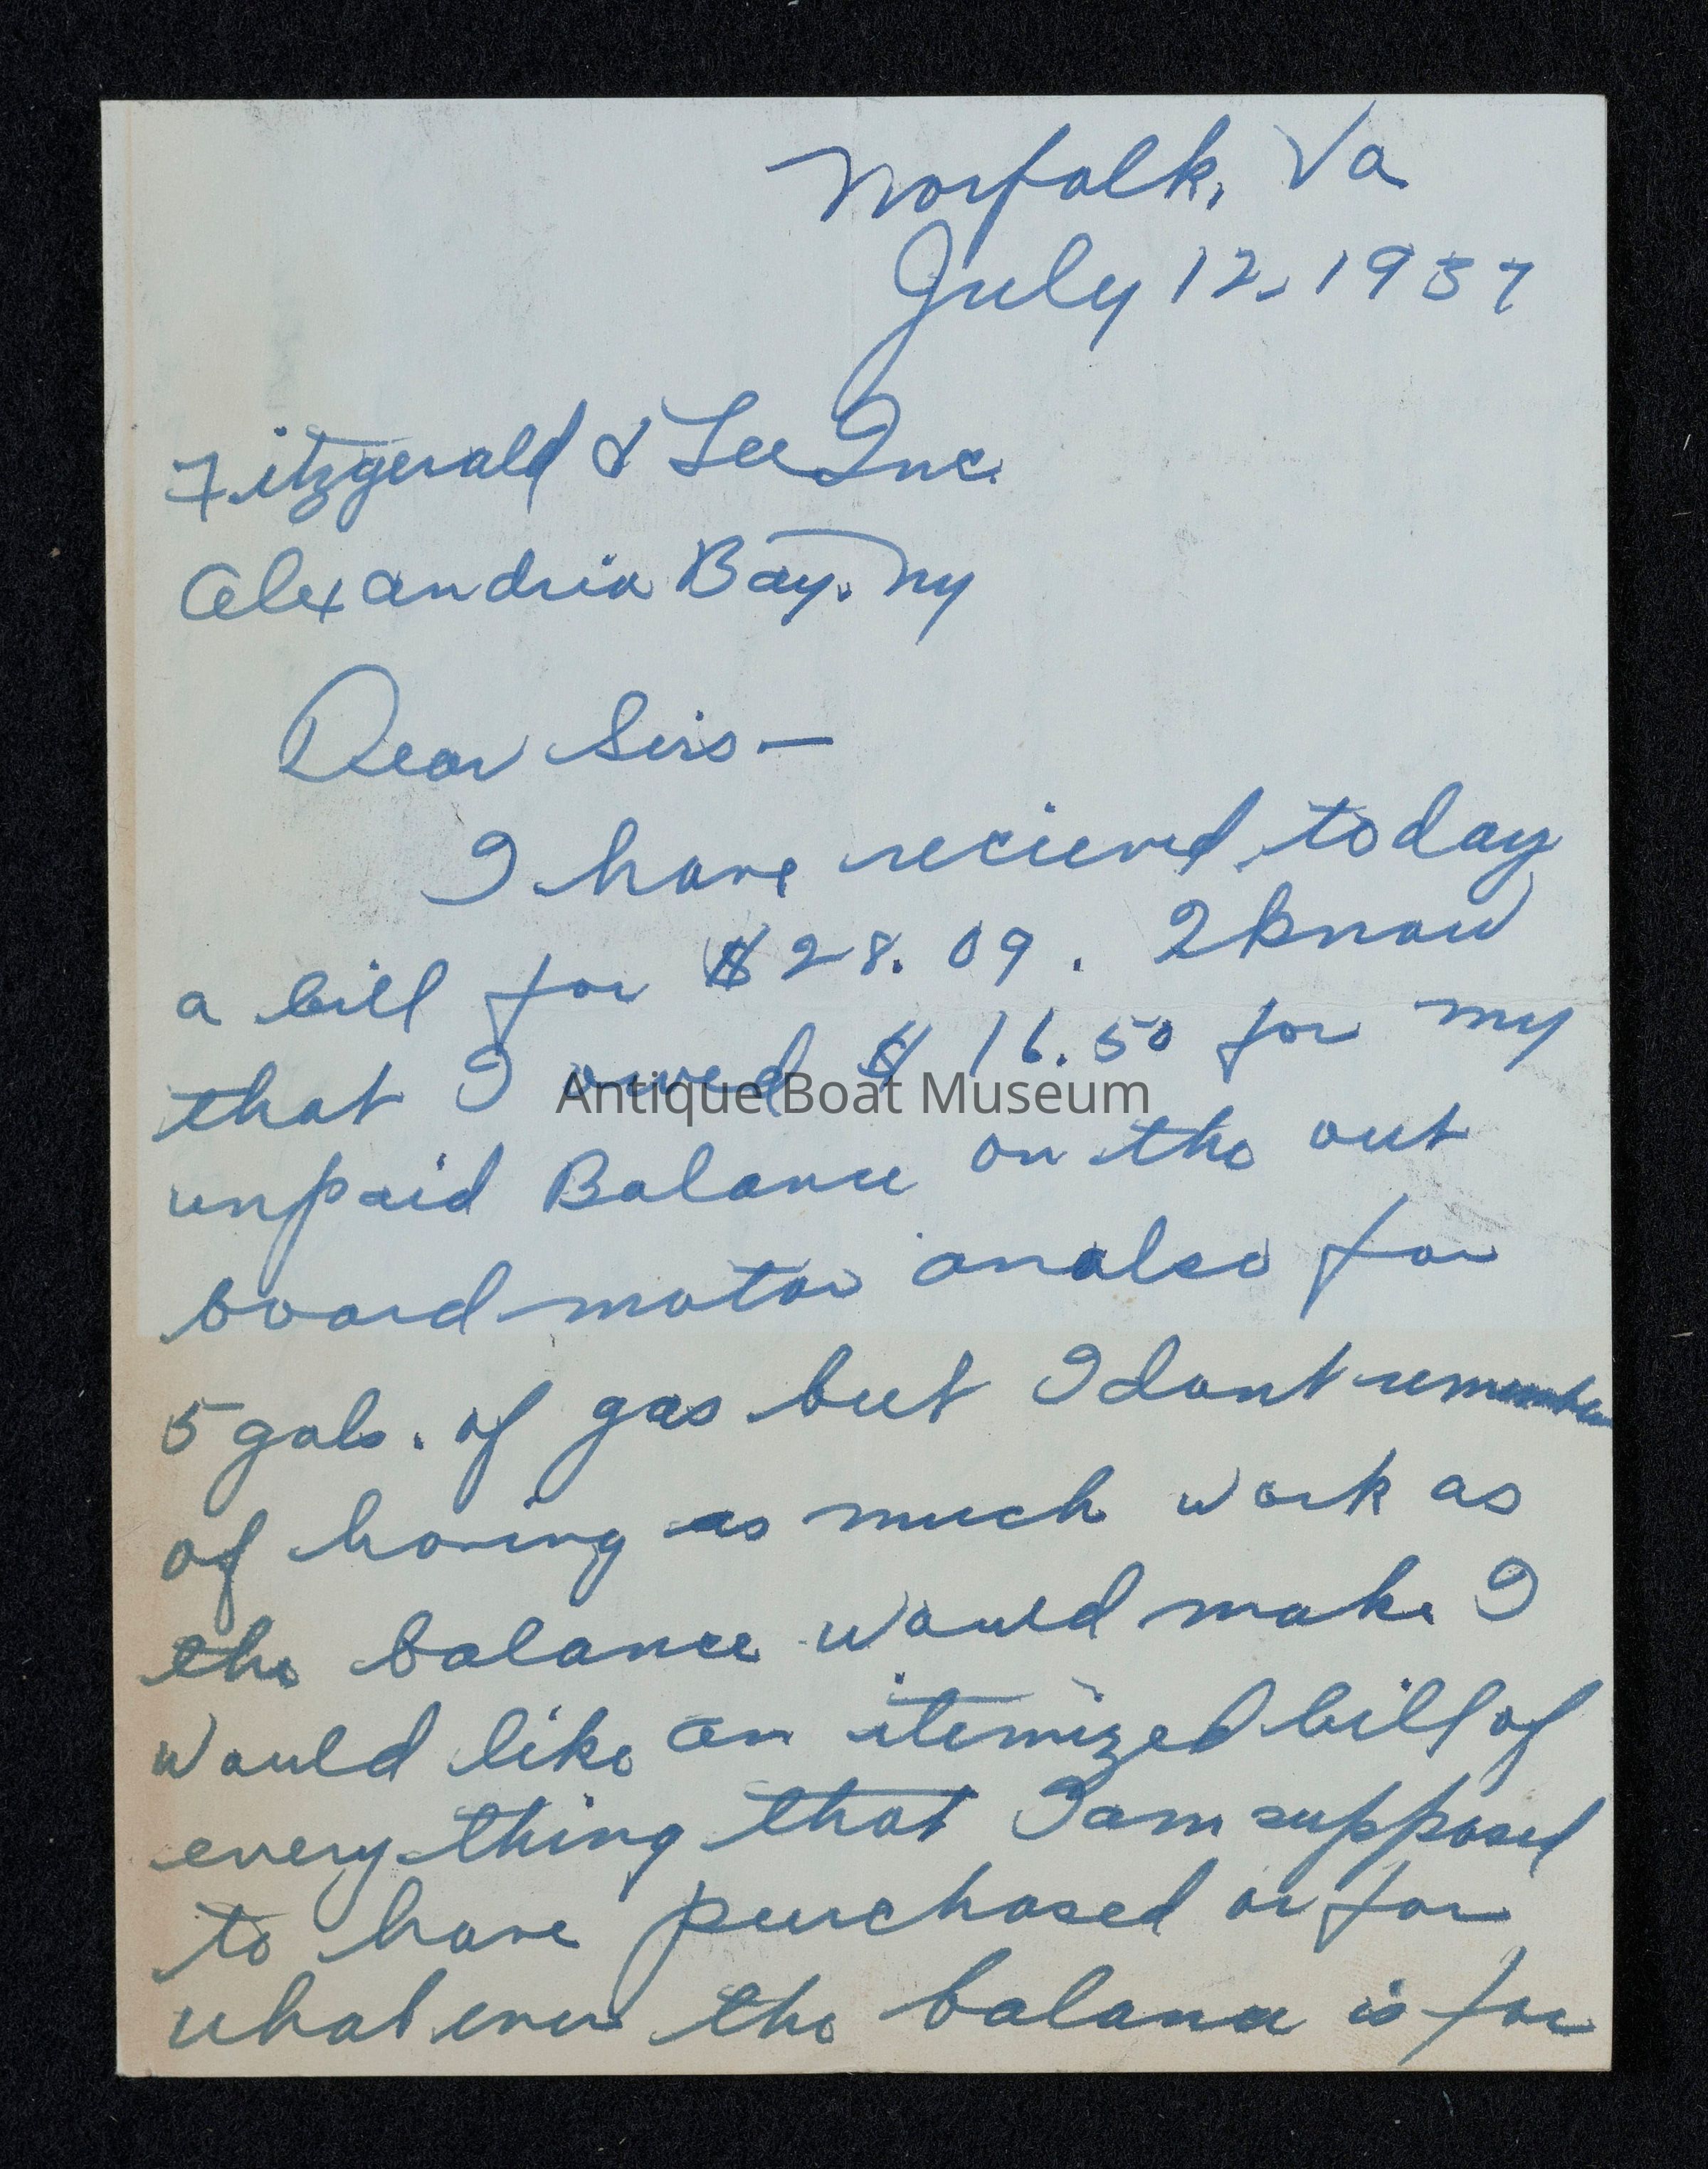 Norfolk, Va
July 12, 1937
Fitzgerald & Lee Inc.
Alexandria Bay. Ny
Dear Sirs —
I have recieved today
a bill for $28.09. I know
that I owed $16.50 for my
Antique Boat Museum
unpaid Balance on the out
board motor an also for
5 gals. of gas but I dont remember
of having as much work as
the balance would make I
would like an itemized bill of
every thing that I am supposed
to have purchased or for
what ever the balance is for